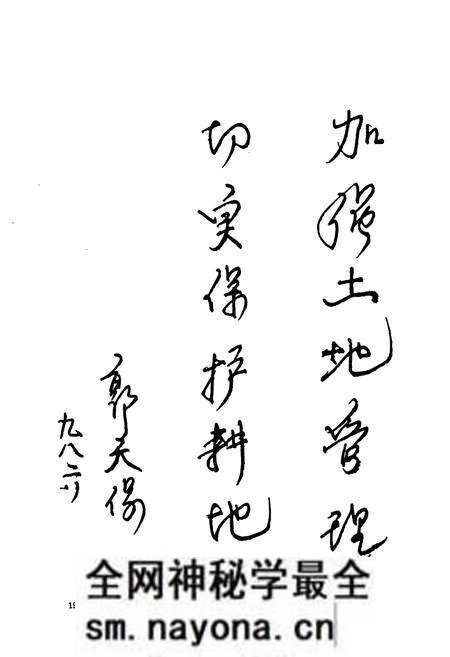 加强土地管理
切实保护耕地
郭天保
九八.二.六
全网神秘学最全
sm.nayona.cn